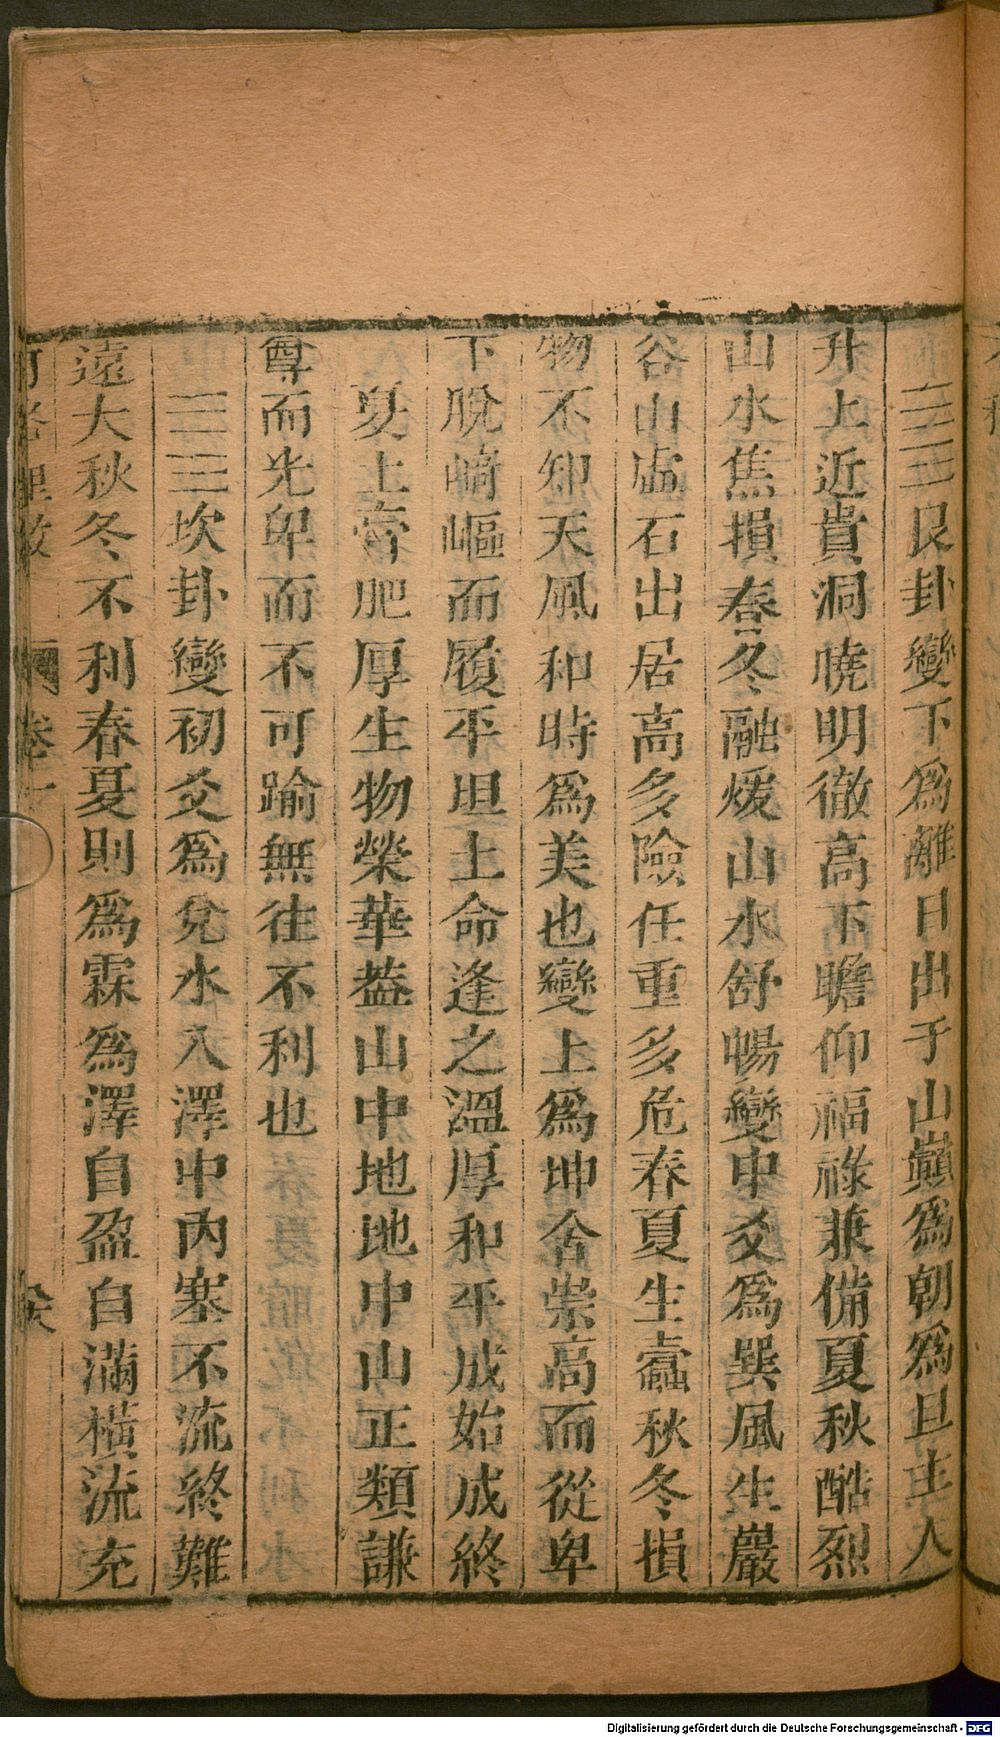 ䷳艮卦變下爲離日出于山巔爲朝爲旦主人
升上近貴洞曉明徹高下瞻仰福祿兼備夏秋酷烈
山水焦損春冬融煖山水舒暢變中爻爲巽風生巖
谷山虛石出居高多險任重多危春夏生蠹秋冬損
物不知天風和時爲美也變上爲坤舍崇高而從卑
下脫崎嶇而履平坦土命逢之溫厚和平成始成終
夏土膏肥厚生物榮華葢山中地地中山正類謙
尊而光卑而不可踰無往不利也
䷜坎卦變初爻爲兌水入澤中內塞不流終難
遠大秋冬不利春夏則爲霖爲澤自盈自滿橫流充
河洛理數 卷一
Digitalisierung gefördert durch die Deutsche Forschungsgemeinschaft - DFG